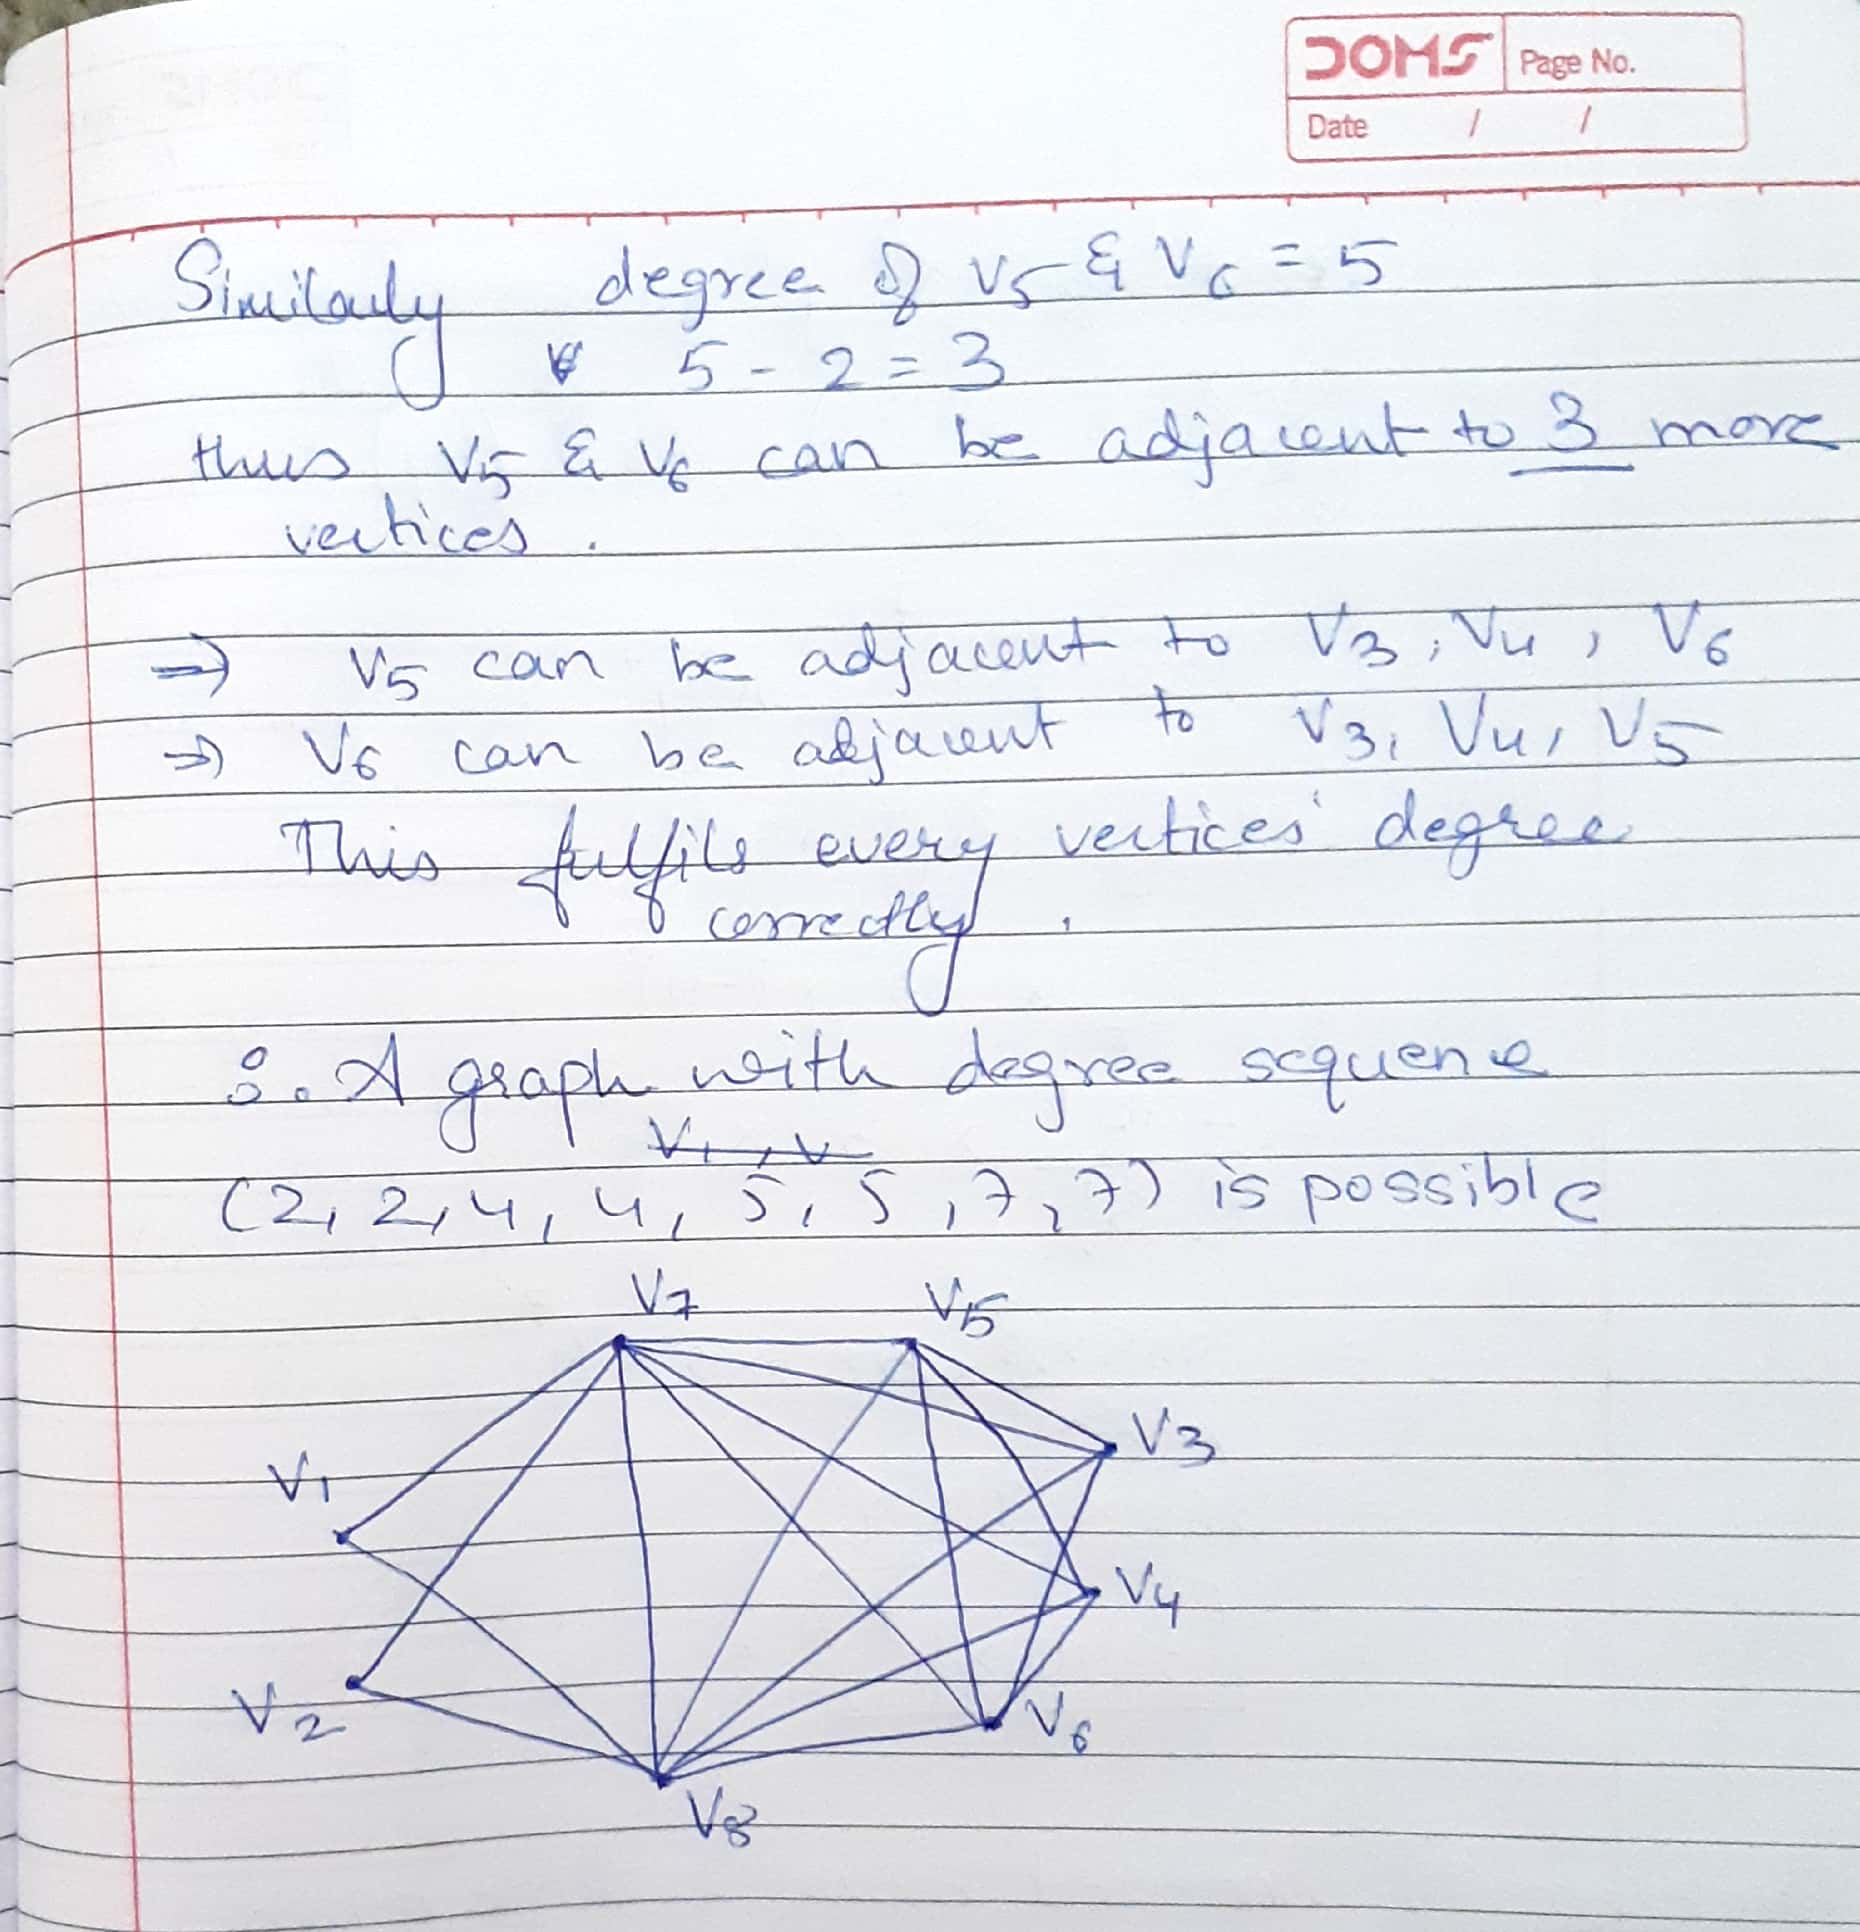 DOMS Page No.
Date / /
Similarly degree of V5 & V6 = 5
5 - 2 = 3
thus V5 & V6 can be adjacent to 3 more
vertices.
⇒ V5 can be adjacent to V3, V4, V6
⇒ V6 can be adjacent to V3, V4, V5
This fulfils every vertices' degree
correctly.
∴ A graph with degree sequene
V1, V
(2, 2, 4, 4, 5, 5, 7, 7) is possible
V7 V5
V3
V1
V4
V2 V6
V8